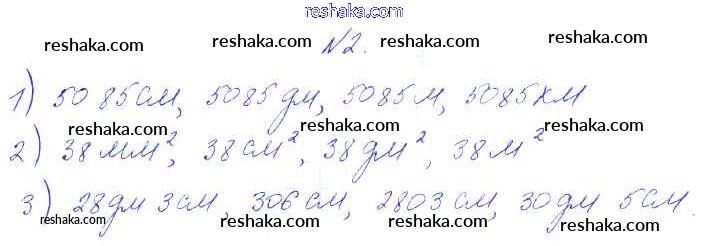 reshaka.com
reshaka.com №2. reshaka.com reshaka.com
1) 5085 см, 5085 дм, 5085 м, 5085 км
reshaka.com reshaka.com reshaka.com
2) 38 мм², 38 см², 38 дм², 38 м²
reshaka.com reshaka.com reshaka.com
3) 28 дм 3 см, 306 см, 2803 см, 30 дм 5 см.
reshaka.com reshaka.com reshaka.com
reshaka.com